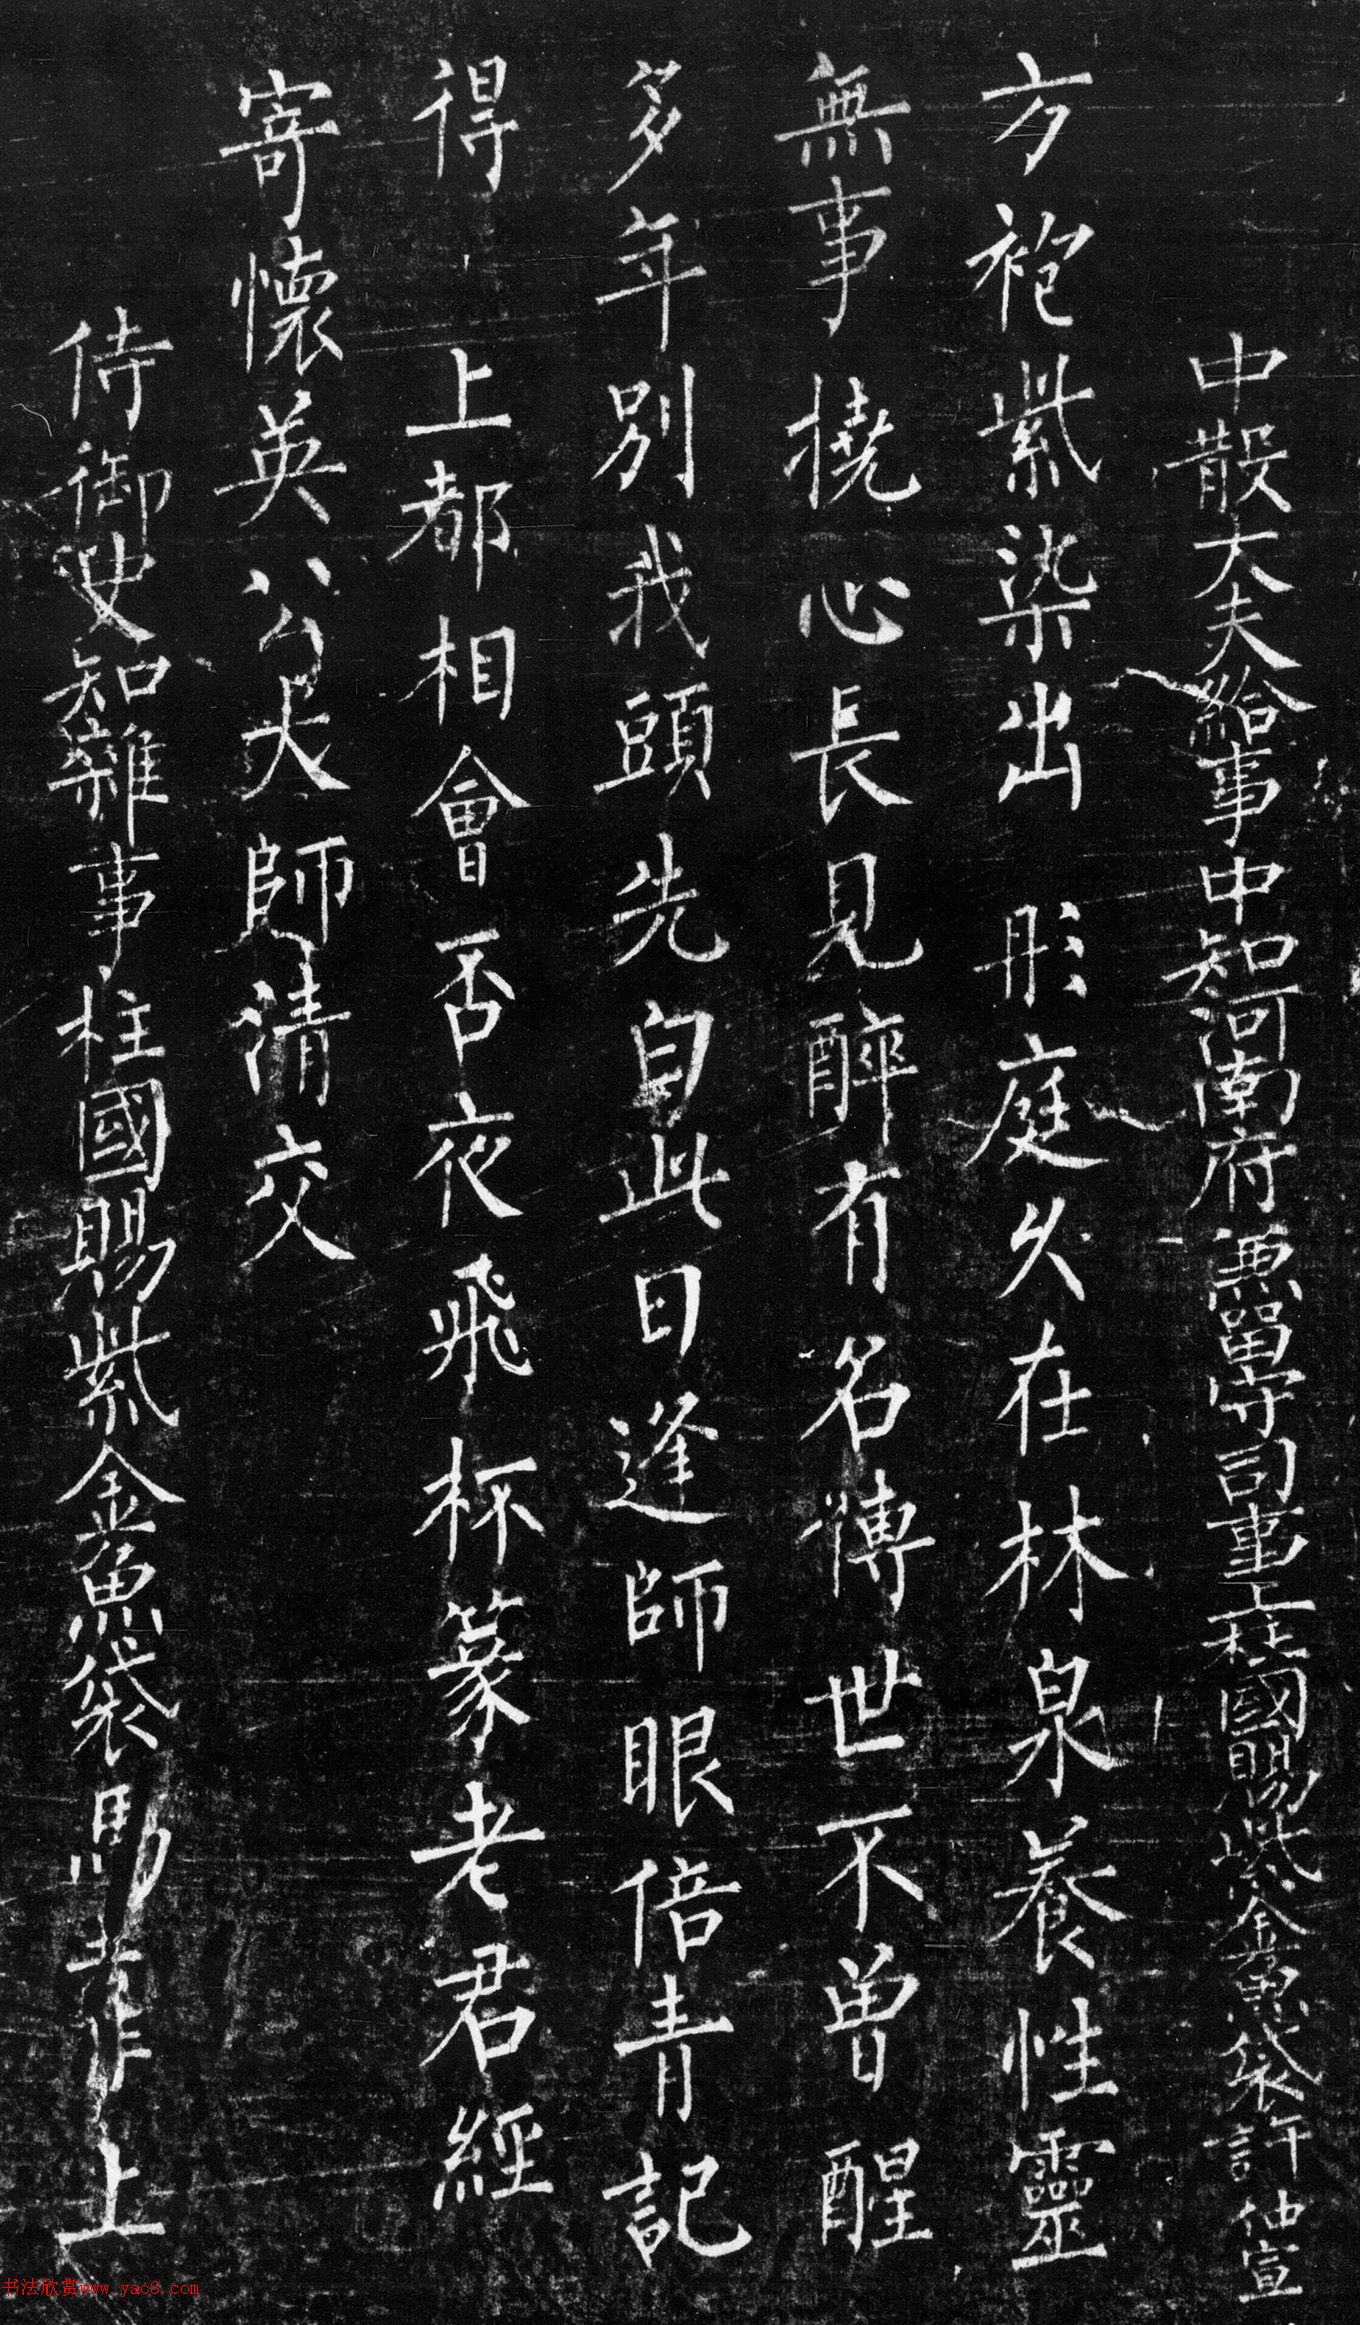 中散大夫給事中知河南府兼留守司事上柱國賜紫金魚袋許仲宣
方袍紫染出 彤庭久在林泉養性靈
無事撓心長見醉有名傳世不曾醒
多年別我頭先白此日逢師眼倍青記
得 上都相會否夜飛杯篆老君經
寄懷英公大師清交
侍御史知雜事柱國賜紫金魚袋馬 上
书法欣赏www.yac8.com